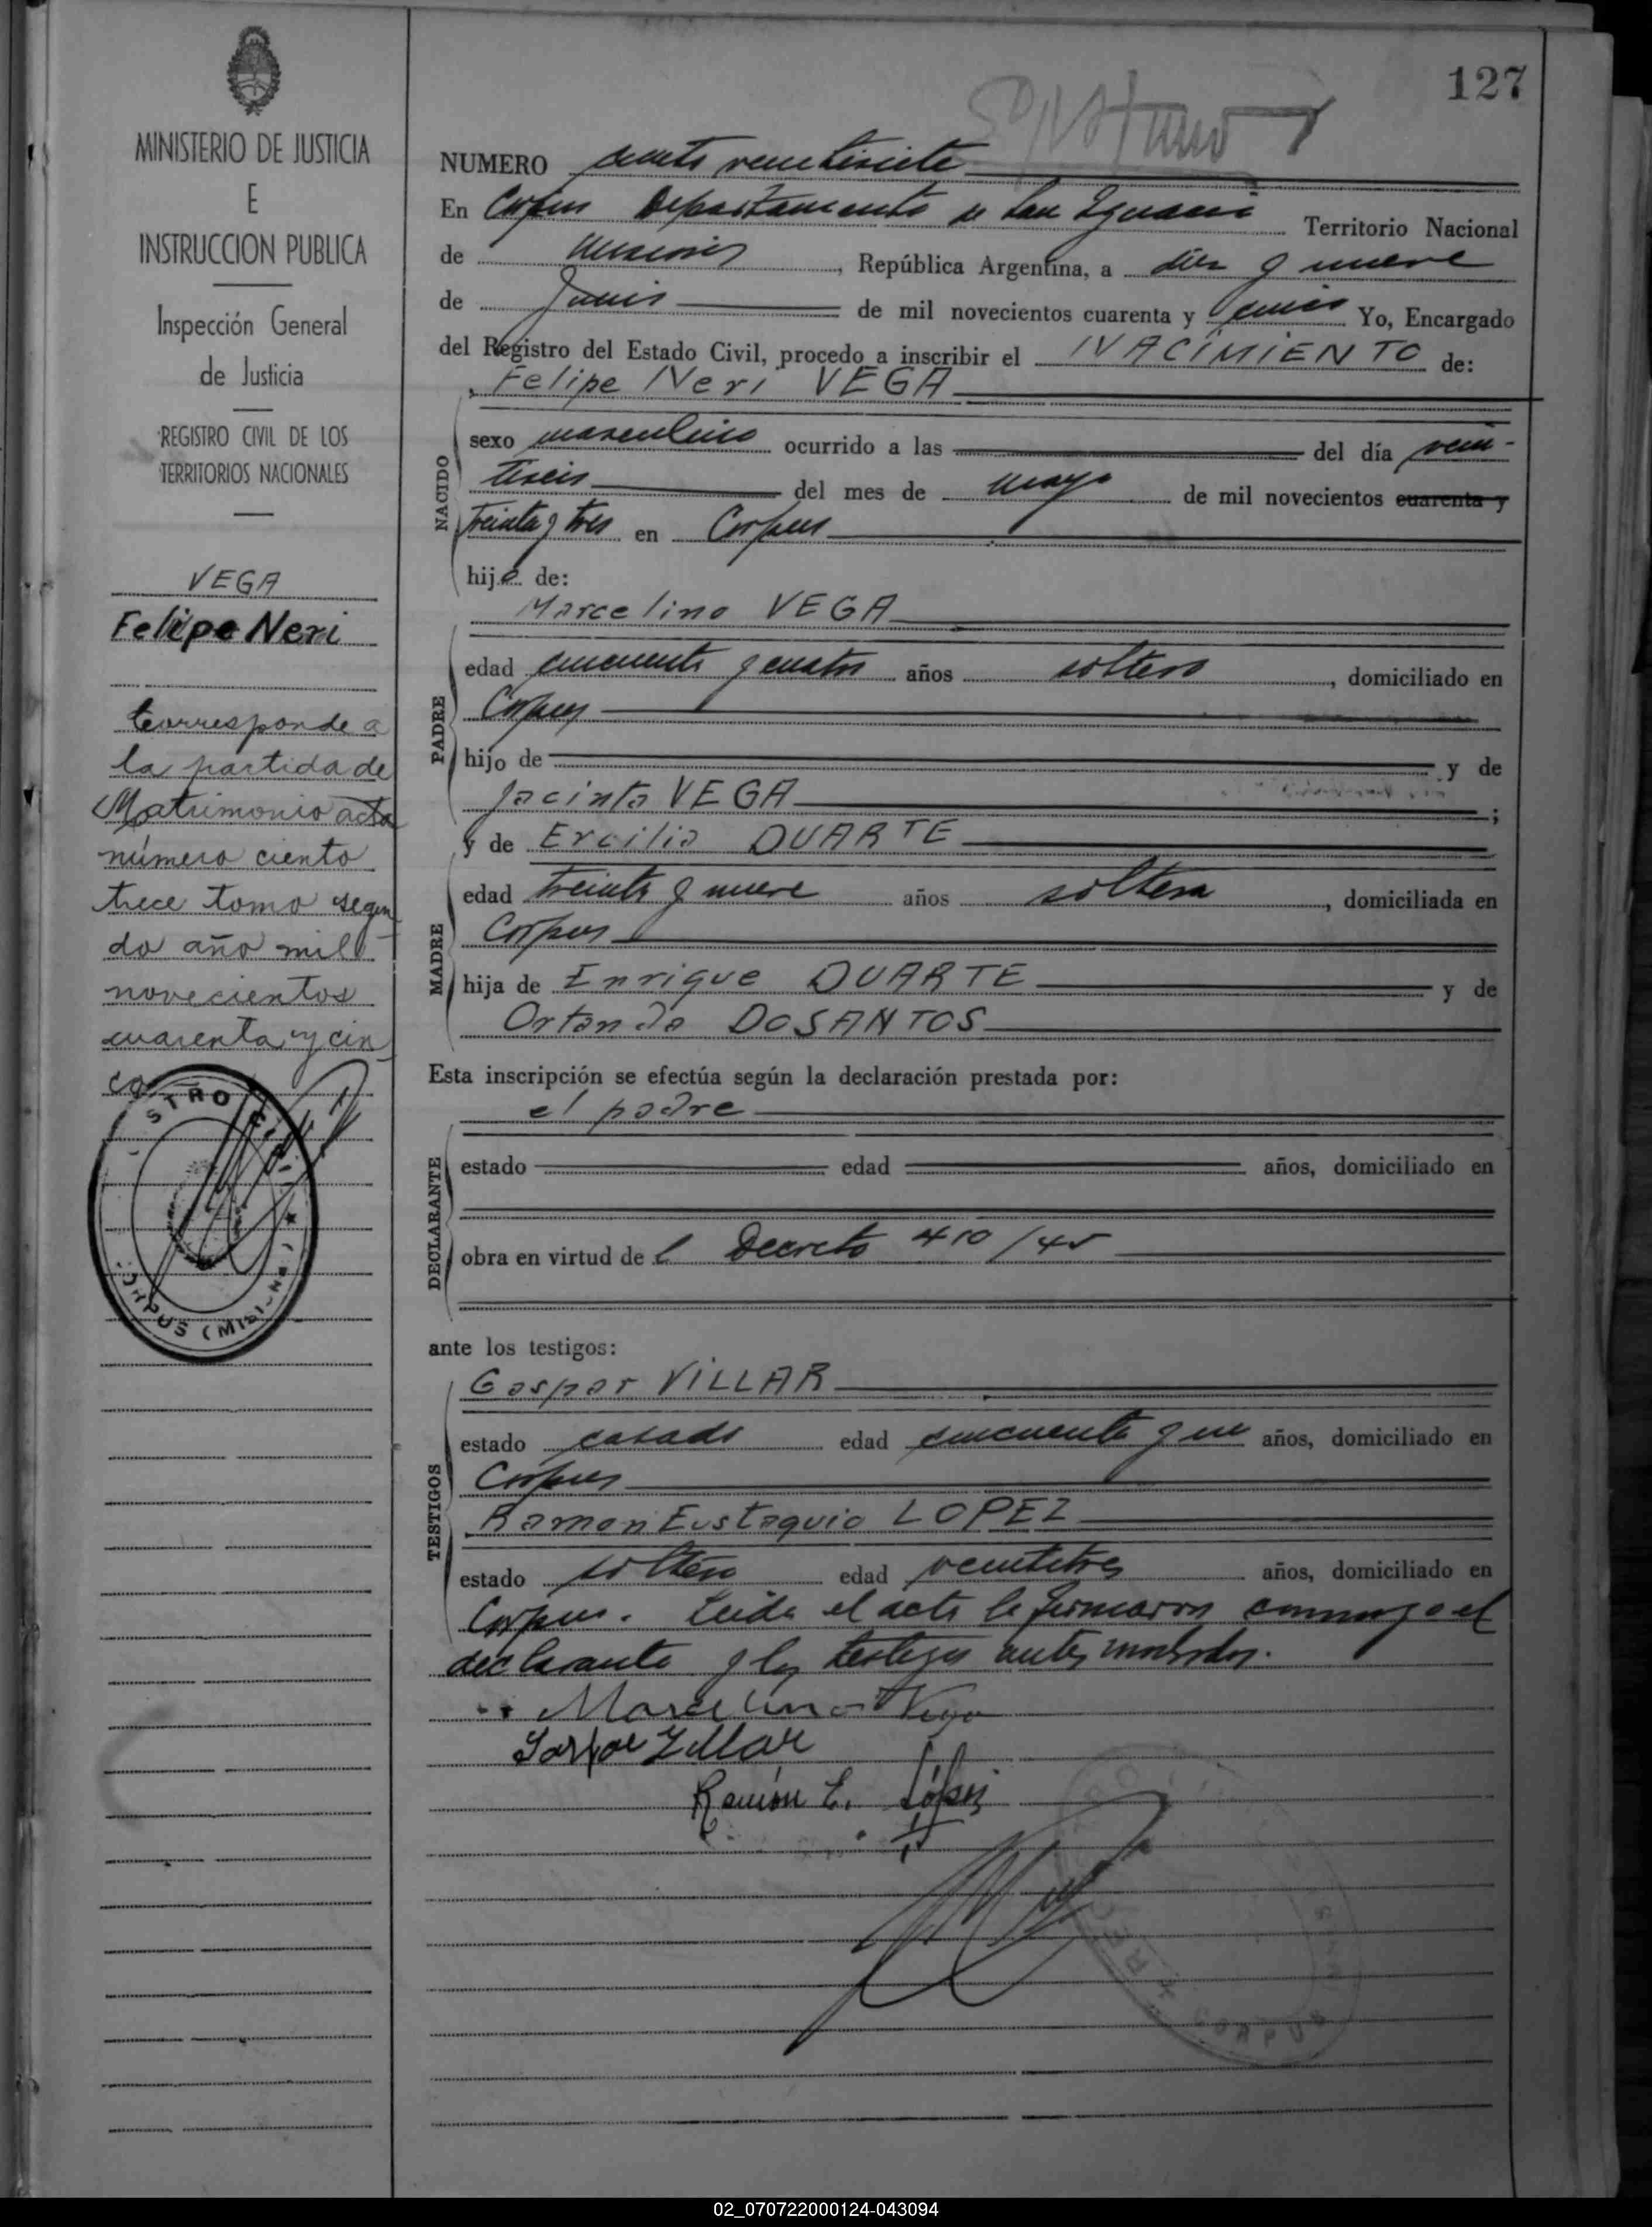 127
MINISTERIO DE JUSTICIA
E
INSTRUCCION PUBLICA
Inspección General
de Justicia
REGISTRO CIVIL DE LOS
TERRITORIOS NACIONALES
VEGA
Felipe Neri
Corresponde a
la partida de
Matrimonio acta
número ciento
trece tomo segun
do año mil
novecientos
cuarenta y cin
co
NUMERO ciento veintisiete
En Corpus Departamento de San Ignacio Territorio Nacional
de Misiones, República Argentina, a diez y nueve
de Junio de mil novecientos cuarenta y cinco Yo, Encargado
del Registro del Estado Civil, procedo a inscribir el NACIMIENTO de:
Felipe Neri VEGA
NACIDO
sexo masculino ocurrido a las del día vein-
tiseis del mes de mayo de mil novecientos cuarenta y
treinta y tres en Corpus
hijo de:
Marcelino VEGA
PADRE
edad cincuenta y cuatro años soltero, domiciliado en
Corpus
hijo de y de
Jacinta VEGA;
y de Ercilia DUARTE
MADRE
edad treinta y nueve años soltera, domiciliada en
Corpus
hija de Enrique DUARTE y de
DOSANTOS
Esta inscripción se efectúa según la declaración prestada por:
el padre
DECLARANTE
estado edad años, domiciliado en
obra en virtud del Decreto 410/45
ante los testigos:
TESTIGOS
Gaspar VILLAR
estado casado edad cincuenta y un años, domiciliado en
Corpus
Ramon Eustaquio LOPEZ
estado soltero edad veintitres años, domiciliado en
Corpus. Leida el acta la firmaron conmigo el
declarante y los testigos antes nombrados.
Marcelino Vega
Gaspar Villar
Ramón E. López
CORPUS
02_070722000124-043094